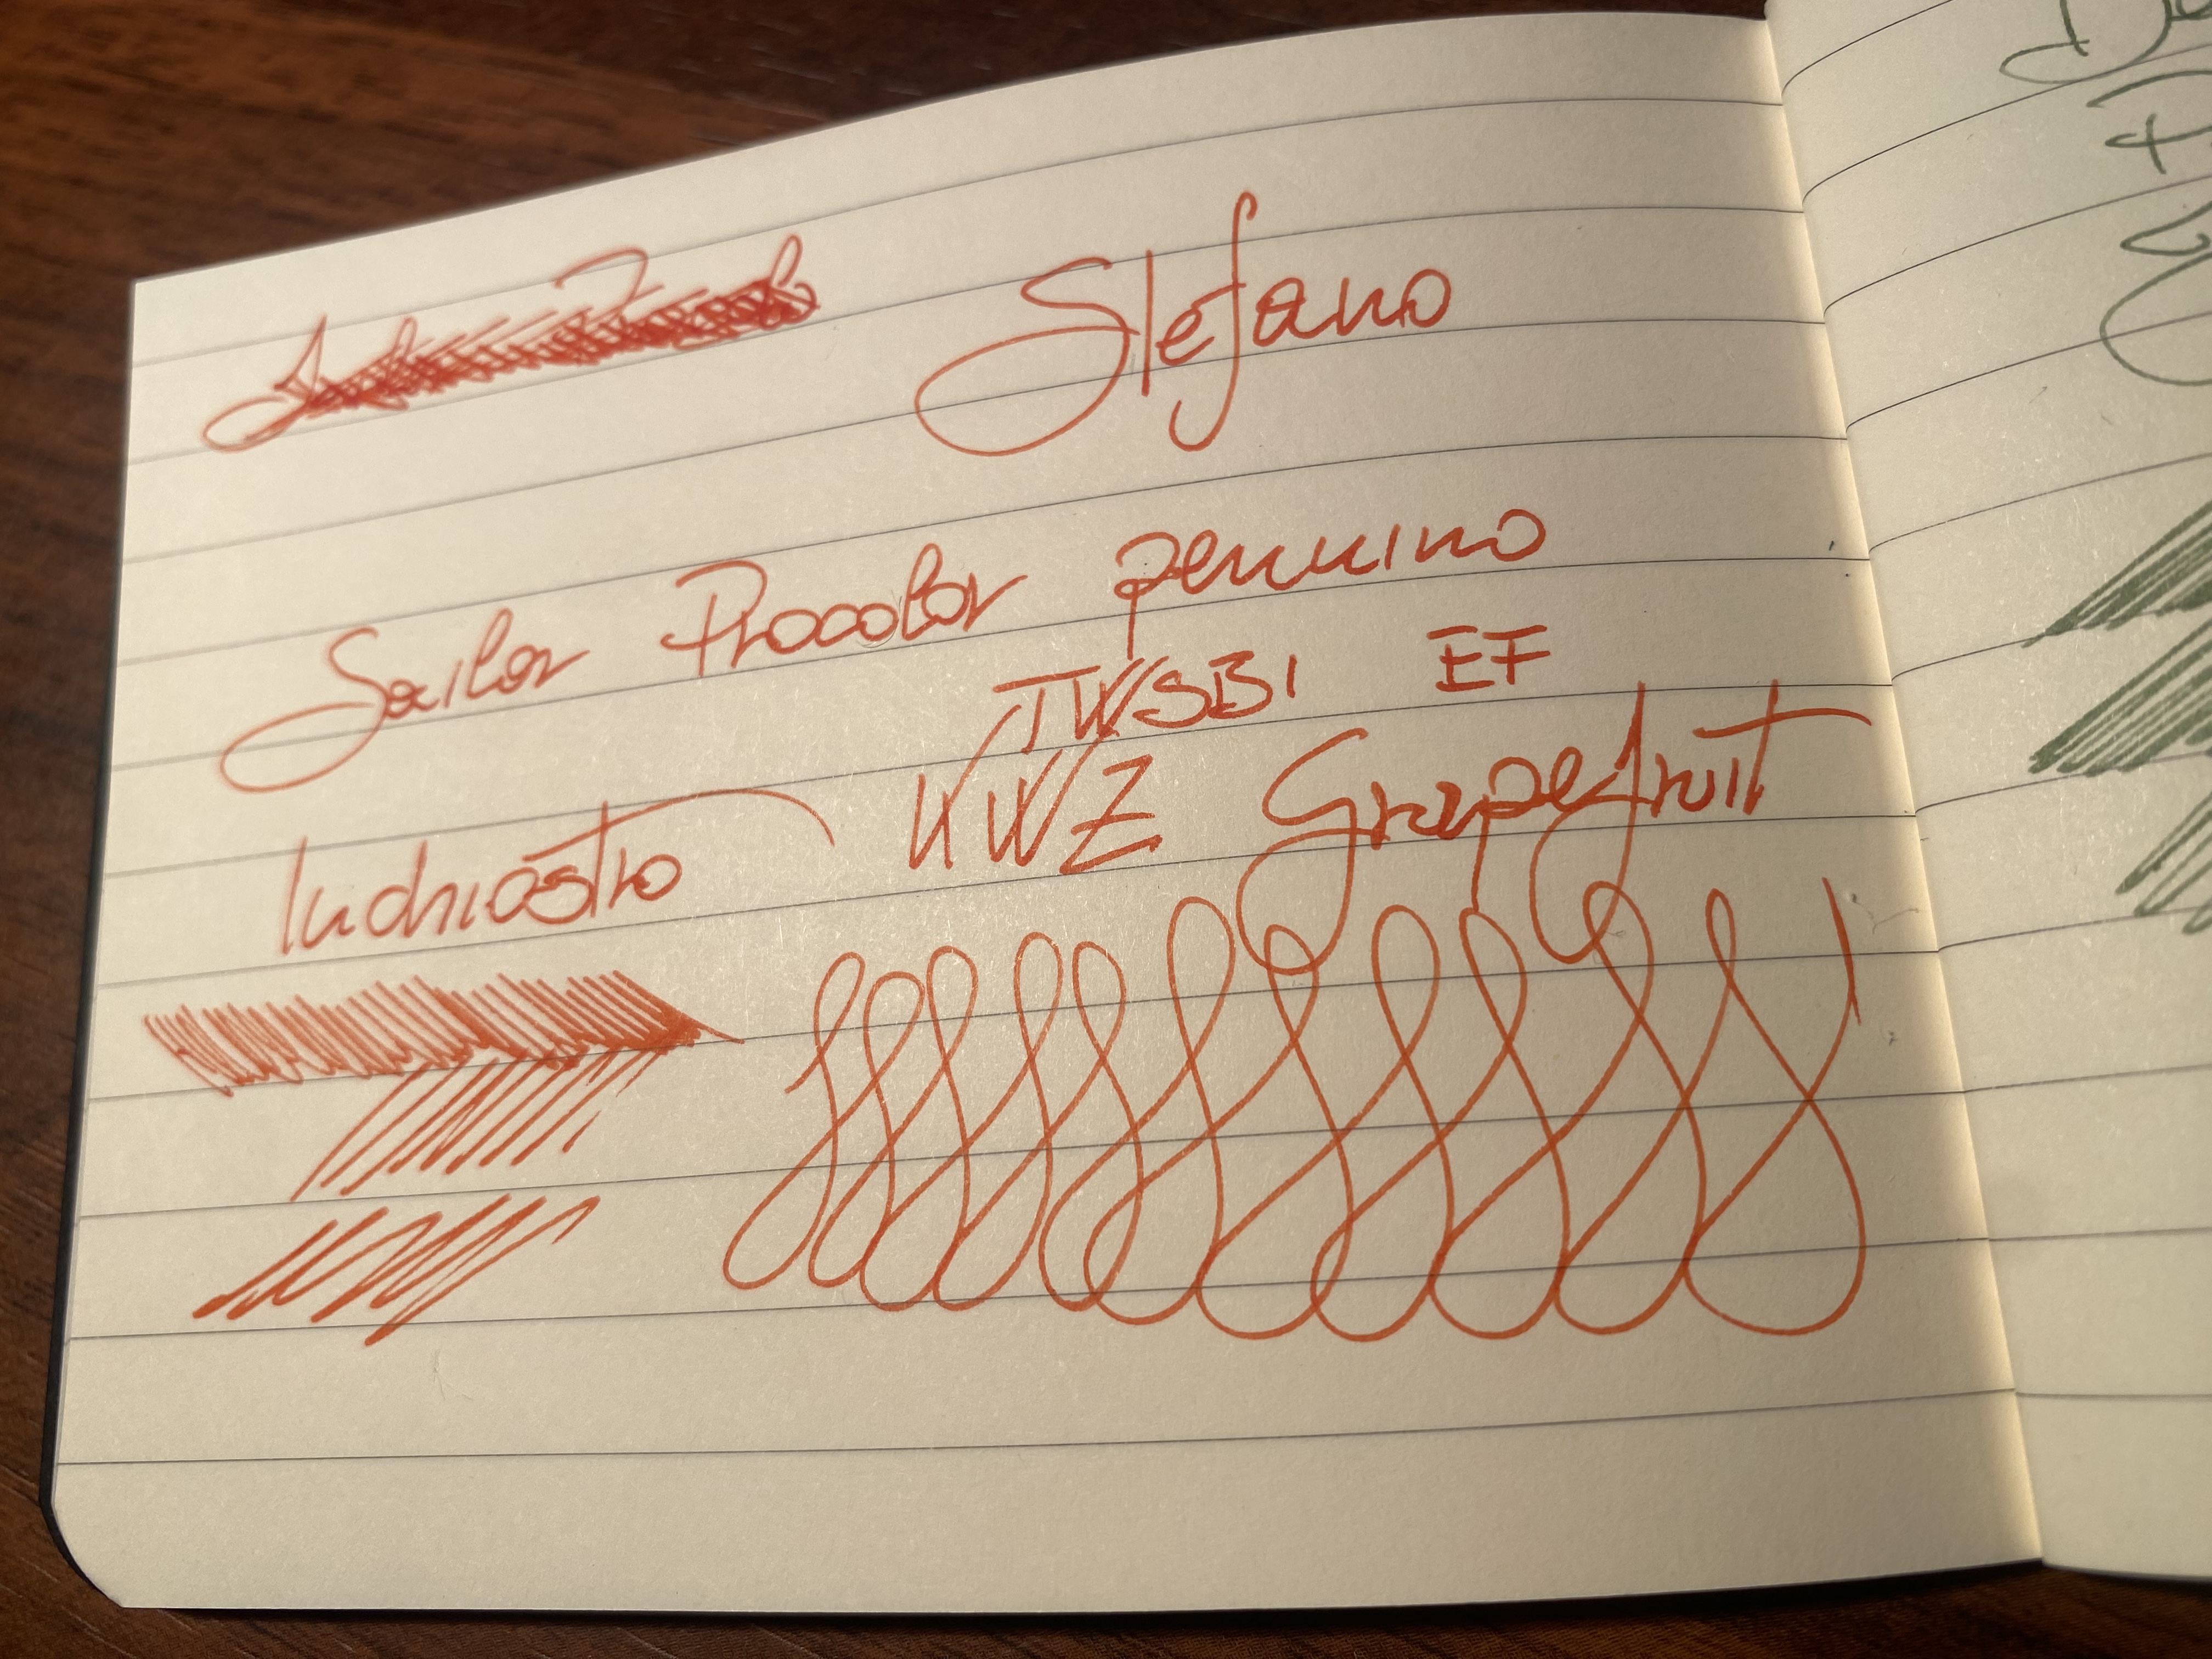 Stefano
Sailor Procolor pennino
TWSBI EF
Inchiostro KWZ Grapefruit